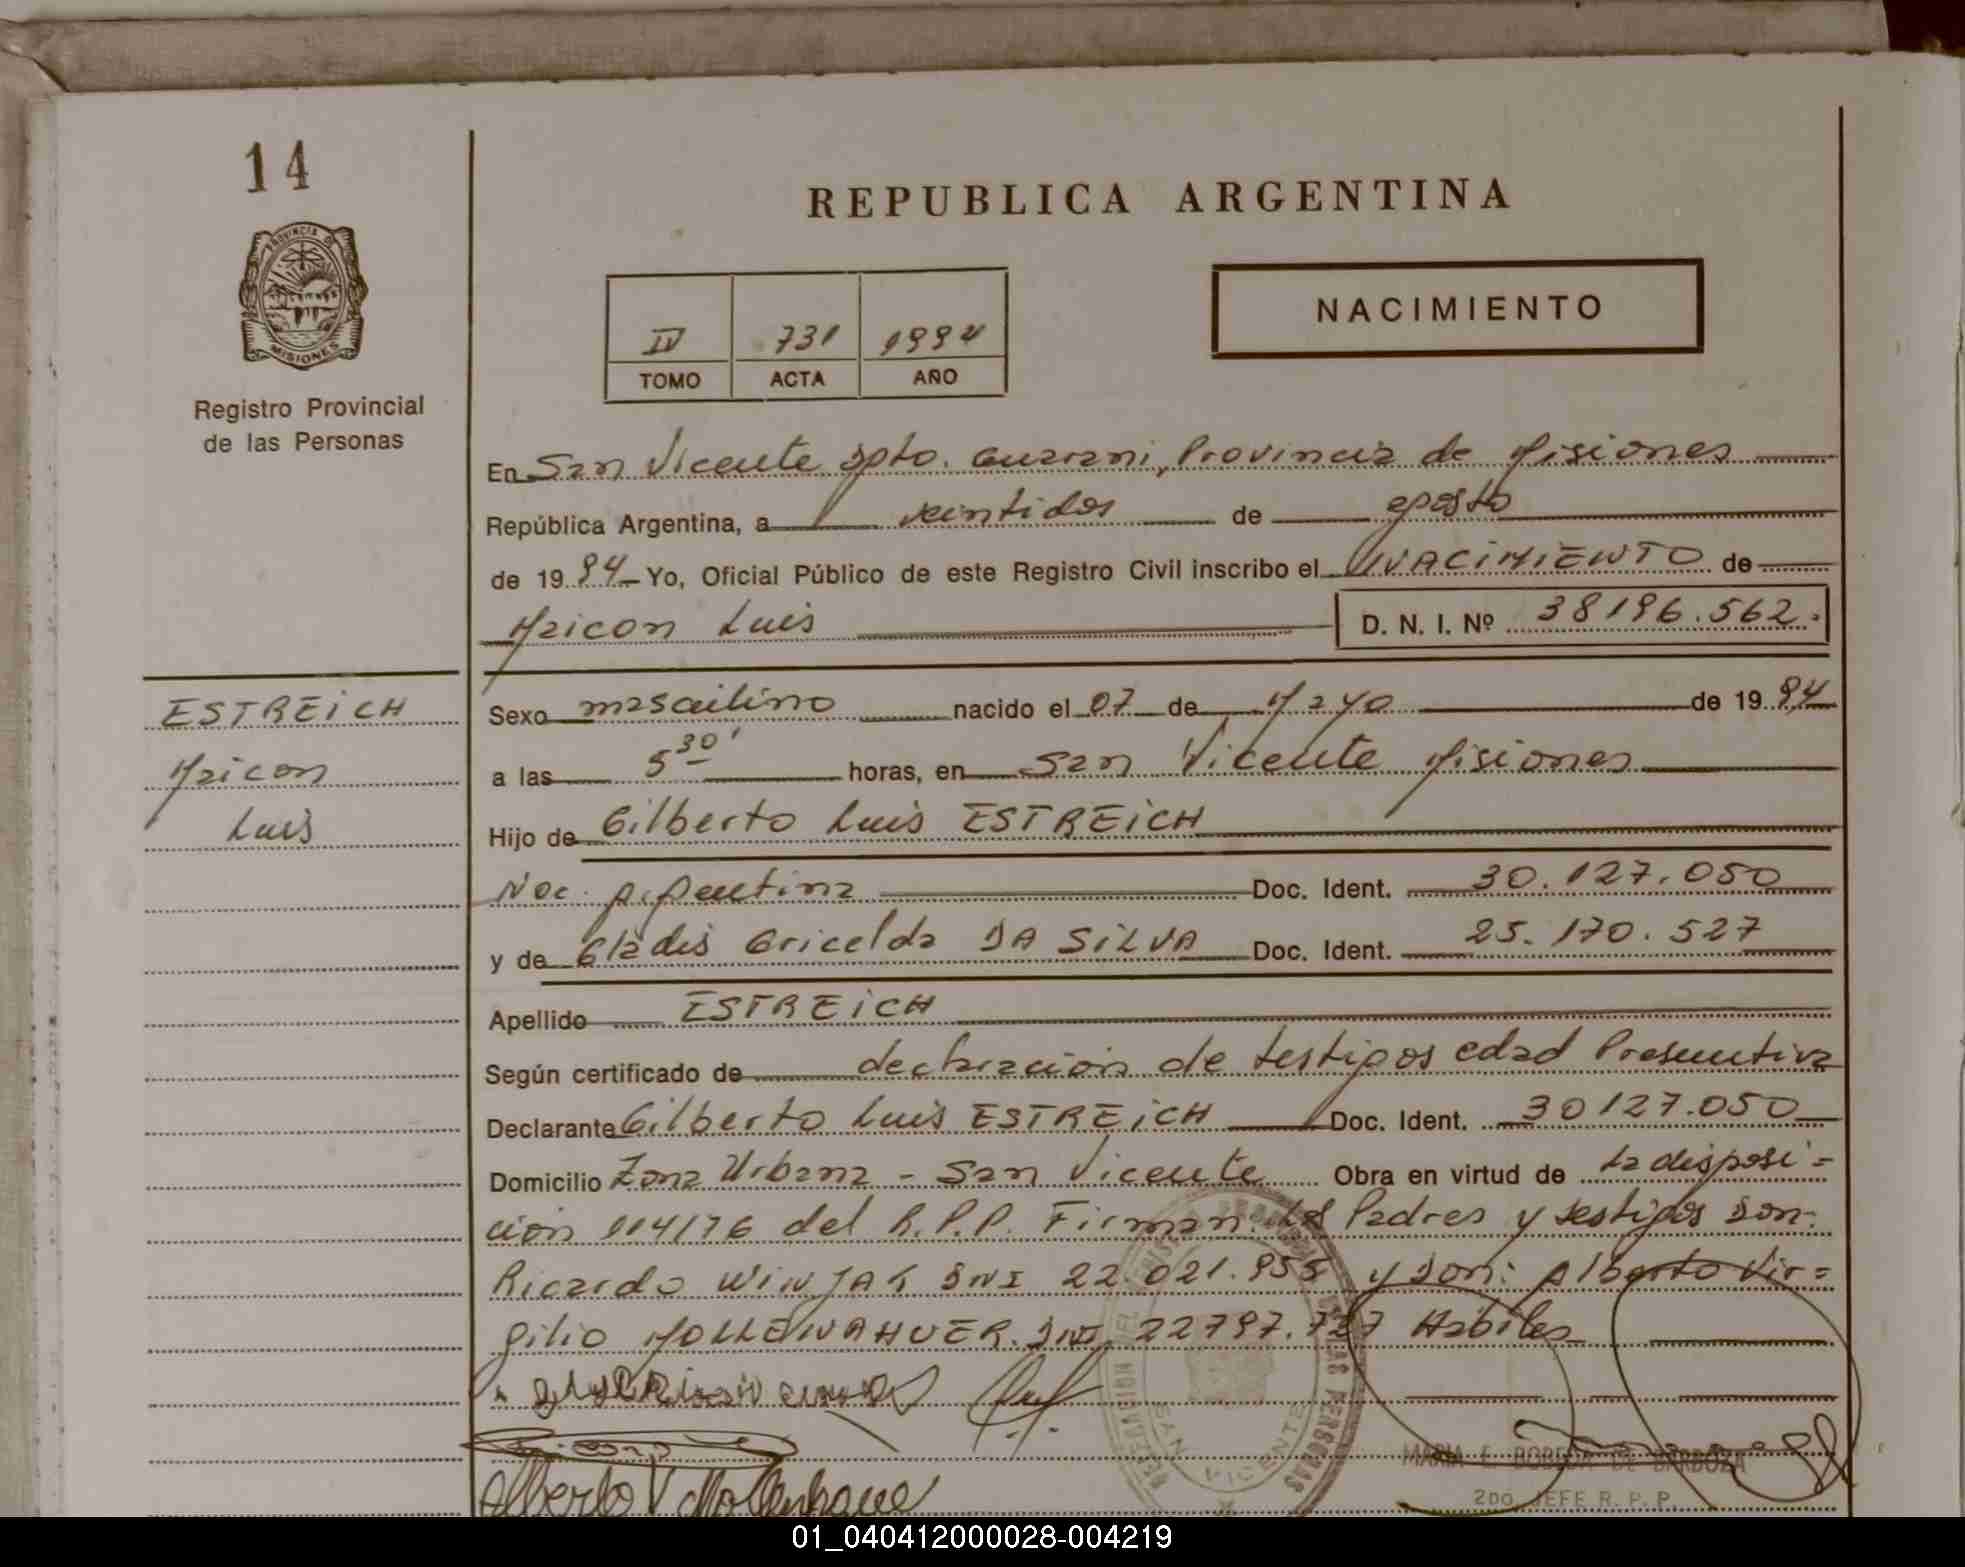 14
REPUBLICA ARGENTINA
PROVINCIA DE
MISIONES
NACIMIENTO
IV 731 1994
TOMO ACTA AÑO
Registro Provincial
de las Personas
En San Vicente Dpto. Guarani, Provincia de Misiones
República Argentina, a veintidos de agosto
de 1994 Yo, Oficial Público de este Registro Civil inscribo el NACIMIENTO de
Maicon Luis D. N. I. Nº 38196.562.
ESTREICH
Maicon
Luis
Sexo masculino nacido el 07 de Mayo de 1994
a las 5 30' horas, en San Vicente Misiones
Hijo de Gilberto Luis ESTREICH
Nac. Argentina Doc. Ident. 30.127.050
y de Gladis Gricelda DA SILVA Doc. Ident. 25.170.527
Apellido ESTREICH
Según certificado de declaración de testigos edad Presuntiva
Declarante Gilberto Luis ESTREICH Doc. Ident. 30127.050
Domicilio Zona Urbana - San Vicente Obra en virtud de la disposi=
ción 114/76 del R.P.P. Firman: Los Padres y testigos Don:
Ricardo DNI 22.021.955 y Don: Alberto Vir=
gilio MOLLENAHUER. DNI 22797.727 Habiles
Alberto V
SAN VICENTE
MARIA E. BOBEDA DE BARBOZA
2DO. JEFE R. P. P.
01_040412000028-004219